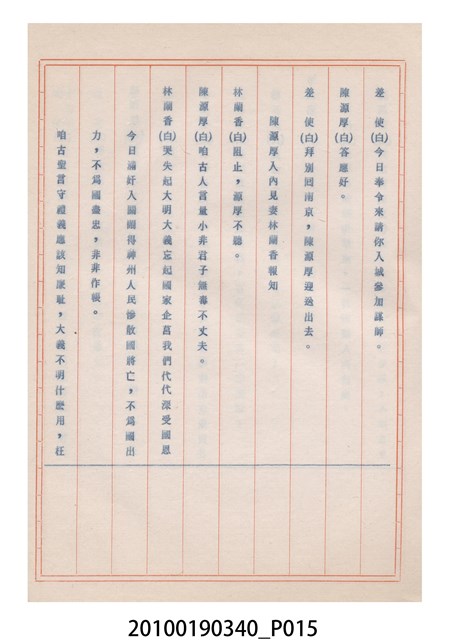 差　使(白)今日奉令來請你入城參加謀師。
陳源厚(白)答應好。
差　使(白)拜別囬南京，陳源厚迎送出去。
陳源厚入內見妻林蘭香報知
林蘭香(白)阻止，源厚不聽。
陳源厚(白)咱古人言量小非君子無毒不丈夫。
林蘭香(白)哭失起大明大義忘起國家企菖我們代代深受國恩
今日請奸入關關得神州人民慘散國將亡，不為國出
力，不為國盡忠，非非作樣。
咱古聖言守禮義應該知廉耻，大義不明什麽用，枉
20100190340_P015